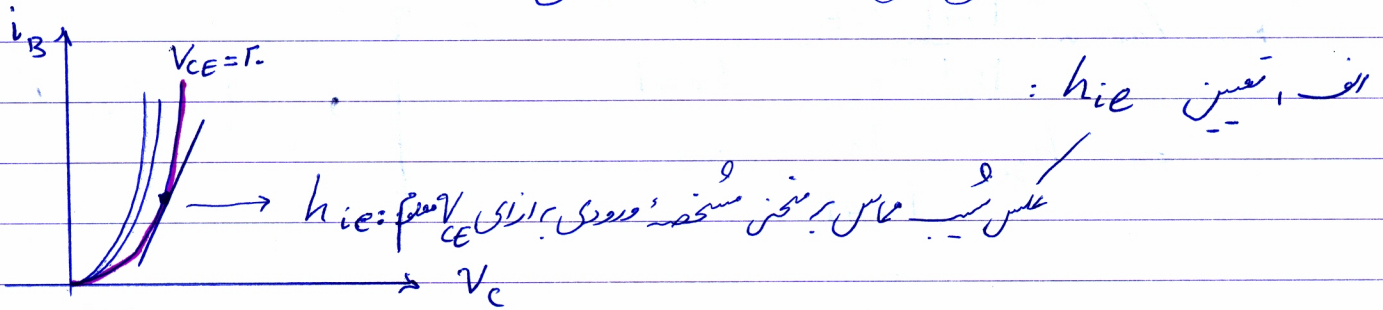 i_B
V_CE = ۲۰
الف، تعیین h_ie :
عکس شیب مماس بر منحنی مشخصهٔ ورودی به ازای V_CE معلوم : h_ie
V_C